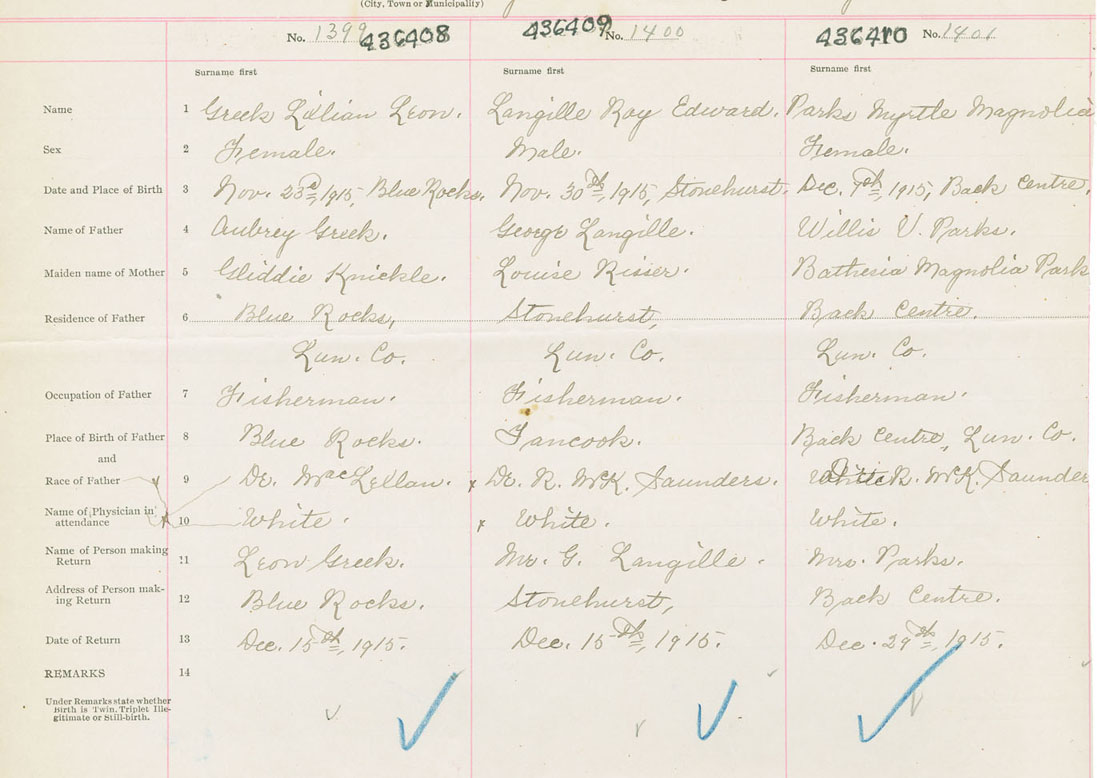 (City, Town or Municipality)
No. 1399 436408 436409 No. 1400 436410 No. 1401
Surname first Surname first Surname first
Name 1 Greek Lillian Leon. Langille Ray Edward. Parks Myrtle Magnolia
Sex 2 Female. Male. Female.
Date and Place of Birth 3 Nov. 23rd, 1915, Blue Rocks. Nov. 30th, 1915, Stonehurst. Dec. 7th, 1915, Back Centre.
Name of Father 4 Aubrey Greek. George Langille. Willis V. Parks.
Maiden name of Mother 5 Gliddie Knickle. Louise Risser. Bathesia Magnolia Park
Residence of Father 6 Blue Rocks, Stonehurst, Back Centre.
Lun. Co. Lun. Co. Lun. Co.
Occupation of Father 7 Fisherman. Fisherman. Fisherman.
Place of Birth of Father 8 Blue Rocks. Tancook. Back Centre, Lun. Co.
and
Race of Father 9 Dr. MacLellan. x Dr. R. McK. Saunders. White Dr. R. McK. Saunders
Name of Physician in attendance 10 White. x White. White.
Name of Person making Return 11 Leon Greek. Mr. G. Langille. Mrs. Parks.
Address of Person making Return 12 Blue Rocks. Stonehurst, Back Centre.
Date of Return 13 Dec. 15th, 1915. Dec. 15th, 1915. Dec. 29th, 1915.
REMARKS 14
Under Remarks state whether
Birth is Twin. Triplet Ille-
gitimate or Still-birth.